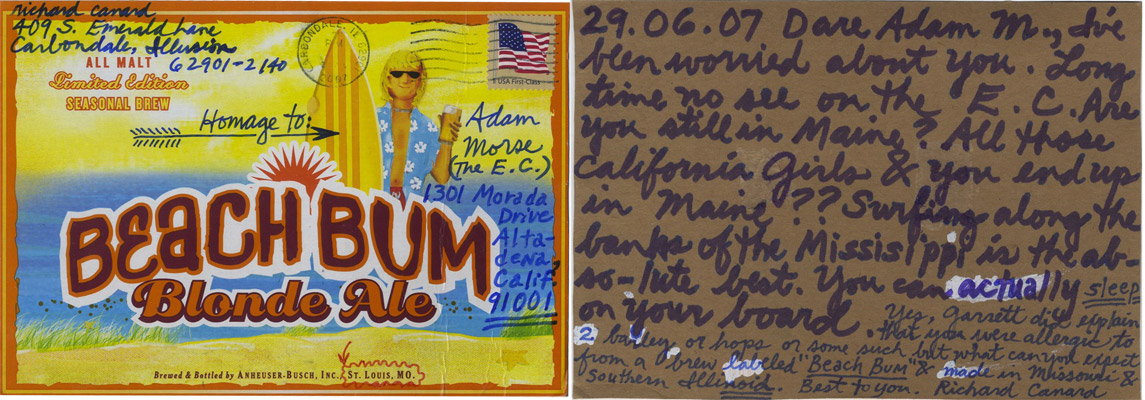 richard canard
409 S. Emerald Lane
Carbondale, Illusion
62901-2140
ALL MALT
Limited Edition
SEASONAL BREW
CARBONDALE, IL
USA First-Class
Homage to:
Adam
Morse
(The E.C.)
1301 Morada
Drive
Alta-
dena,
Calif.
91001
BEACH BUM
Blonde Ale
Brewed & Bottled by ANHEUSER-BUSCH, INC. ST. LOUIS, MO.
29.06.07 Dare Adam M., I've
been worried about you. Long
time no see on the E.C. Are
you still in Maine? All those
California Girls & you end up
in Maine?? Surfing along the
banks of the Mississippi is the ab-
so-lute best. You can actually sleep
on your board.
Yes, Garrett did explain
that you were allergic to
2 barley or hops or some such, but what can you expect
from a brew labled "Beach Bum" & made in Missouri &
Southern Illinoid. Best to you. Richard Canard